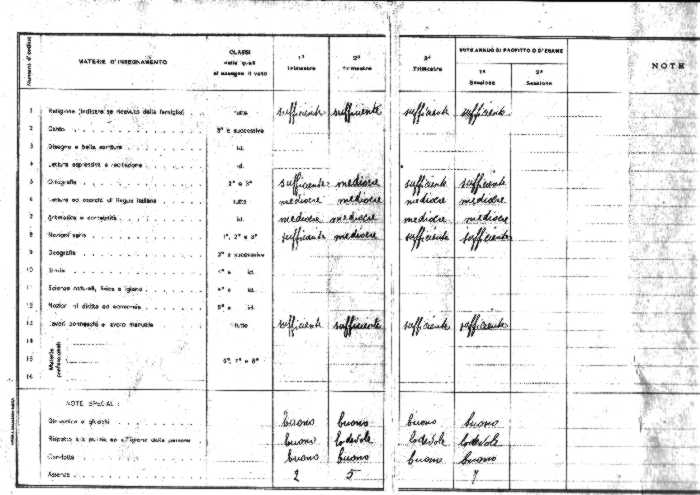 Numero d'ordine MATERIE D'INSEGNAMENTO CLASSI nelle quali si assegna il voto 1º Trimestre 2º Trimestre 3º Trimestre VOTO ANNUO DI PROFITTO O D'ESAME 1ª Sessione 2ª Sessione NOTE
1 Religione (indicare se ricevuto dalla famiglia) tutte sufficiente sufficiente sufficiente sufficiente
2 Canto 3ª e successive
3 Disegno e bella scrittura id.
4 Lettura espressiva e recitazione id.
5 Ortografia 2ª e 3ª sufficiente mediocre sufficiente sufficiente
6 Lettura ed esercizi di lingua italiana tutte mediocre mediocre mediocre mediocre
7 Aritmetica e contabilità id. mediocre mediocre mediocre mediocre
8 Nozioni varie 1ª, 2ª e 3ª sufficiente mediocre sufficiente sufficiente
9 Geografia 3ª e successive
10 Storia id.
11 Scienze naturali, fisica e igiene id.
12 Nozioni di diritto ed economia 5ª e id.
13 Lavori donneschi e lavoro manuale tutte sufficiente sufficiente sufficiente sufficiente
14
15 Materie professionali 6ª, 7ª e 8ª
16
NOTE SPECIALI
Ginnastica e giuochi buono buono buono buono
Rispetto alla pulizia ed all'igiene della persona buono lodevole lodevole lodevole
Condotta buono buono buono buono
Assenze 2 5 7